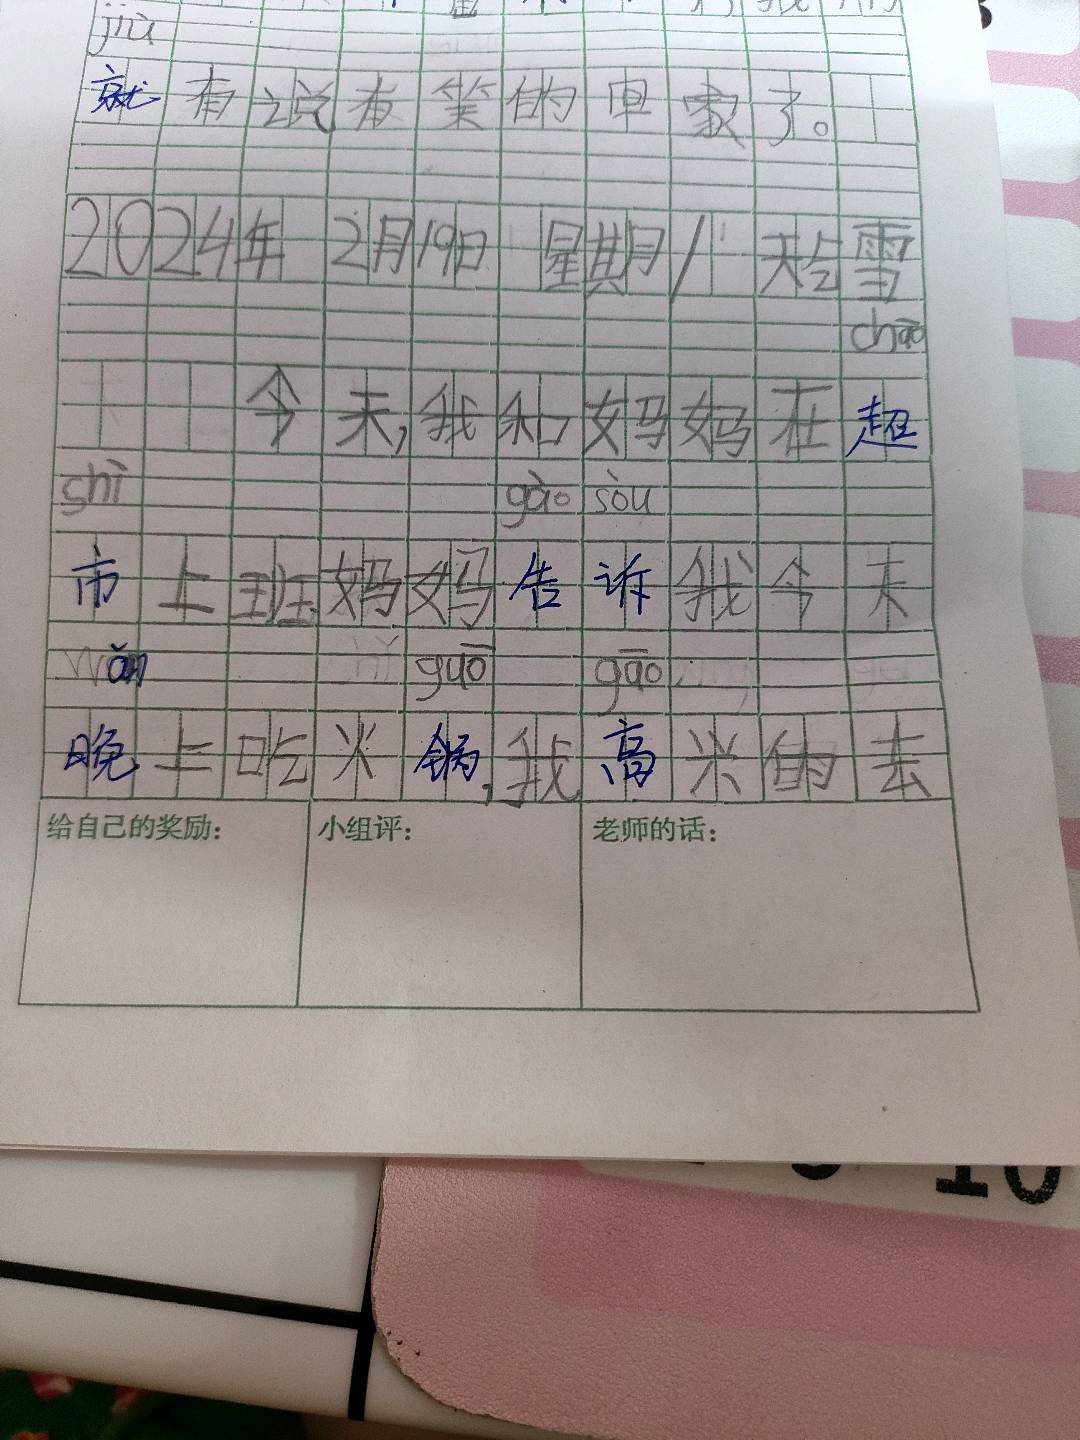 jiù
就有说有笑的回家了。
2024年 2月19日 星期1 大雪
chāo
今天,我和妈妈在超
shì gào sòu
市上班妈妈告诉我今天
wǎn guō gāo
晚上吃火锅,我高兴的去
给自己的奖励: 小组评: 老师的话:
10